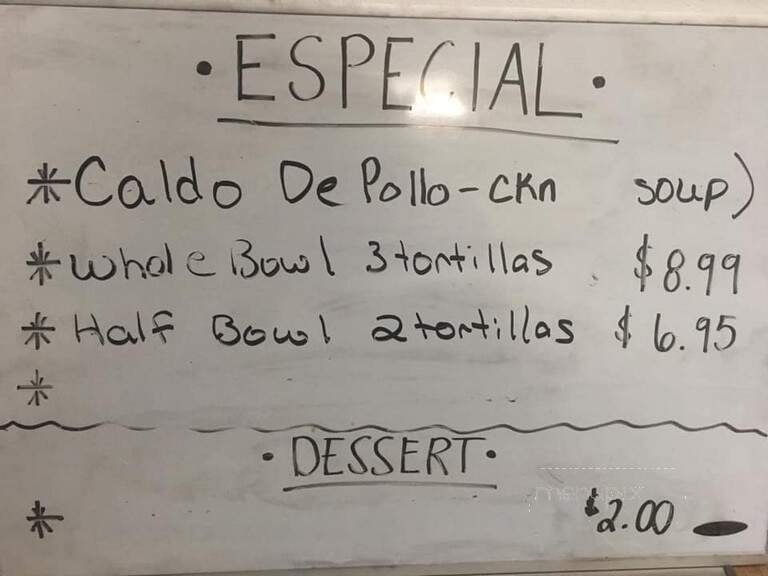 • ESPECIAL •
* Caldo De Pollo - CKn soup)
* Whole Bowl 3 tortillas $8.99
* Half Bowl 2 tortillas $6.95
*
• DESSERT •
menupix
* $2.00